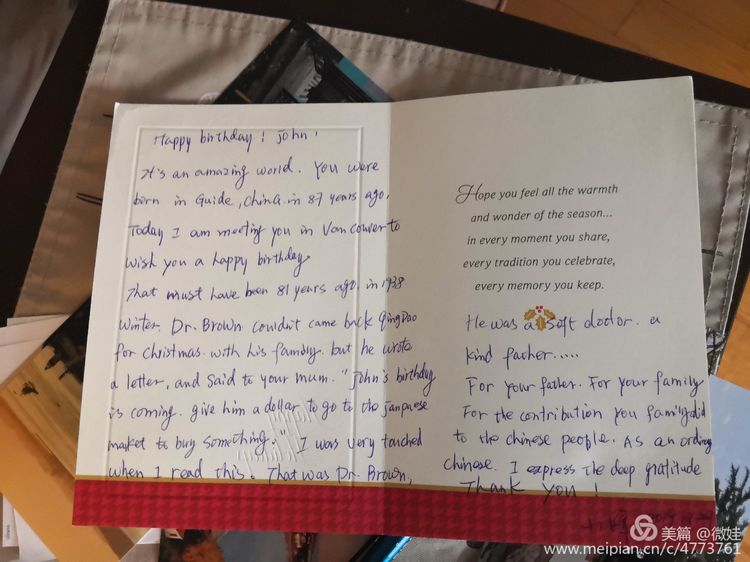 Happy birthday! john!
It's an amazing world. You were
born in Guide, China. in 87 years ago,
Today I am meeting you in Vancouver to
wish you a happy birthday.
That must have been 81 years ago. in 1938
winter. Dr. Brown couldn't came back QingDao
for christmas. with his family. but he wrote
a letter, and said to your mum. "John's birthday
is coming. give him a dollar to go to the janpaese
market to buy something." I was very touched
when I read this. That was Dr. Brown,
Hope you feel all the warmth
and wonder of the season...
in every moment you share,
every tradition you celebrate,
every memory you keep.
He was a soft doctor. a
kind father.....
For your father. For your family
For the contribution you family did
to the chinese people. As an ordinary
chinese. I express the deep gratitude
Thank you!
美篇 @微娃
www.meipian.cn/c/4773761